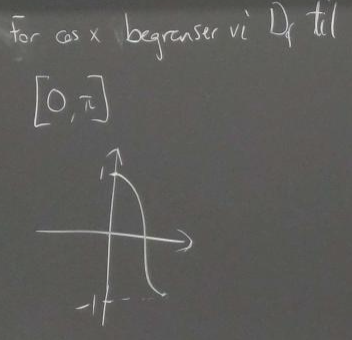 For cos x begrenser vi Df til
[0, π]
1
-1